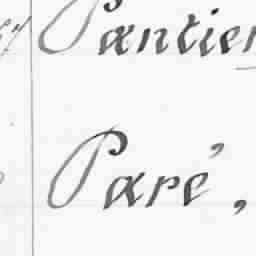 Pantier
Paré,